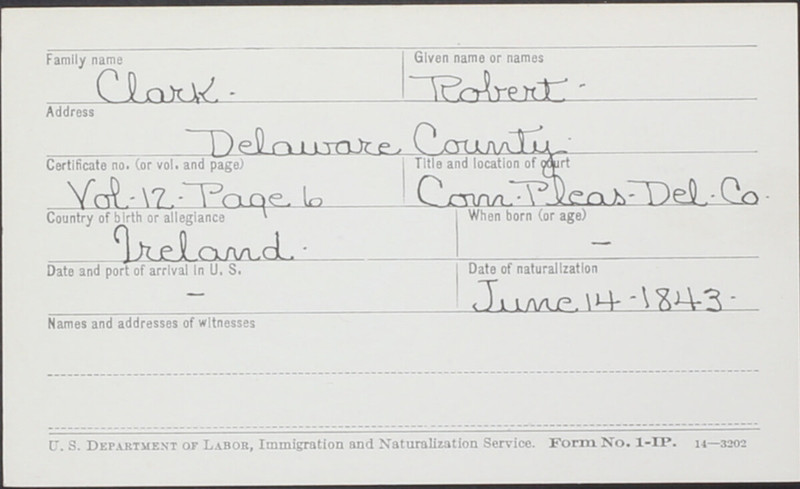 Family name Given name or names
Clark. Robert.
Address
Delaware County.
Certificate no. (or vol. and page) Title and location of court
Vol-12-Page 6 Com-Pleas-Del-Co.
Country of birth or allegiance When born (or age)
Ireland. –
Date and port of arrival in U. S. Date of naturalization
– June 14-1843-
Names and addresses of witnesses
U. S. Department of Labor, Immigration and Naturalization Service. Form No. 1-IP. 14—3202